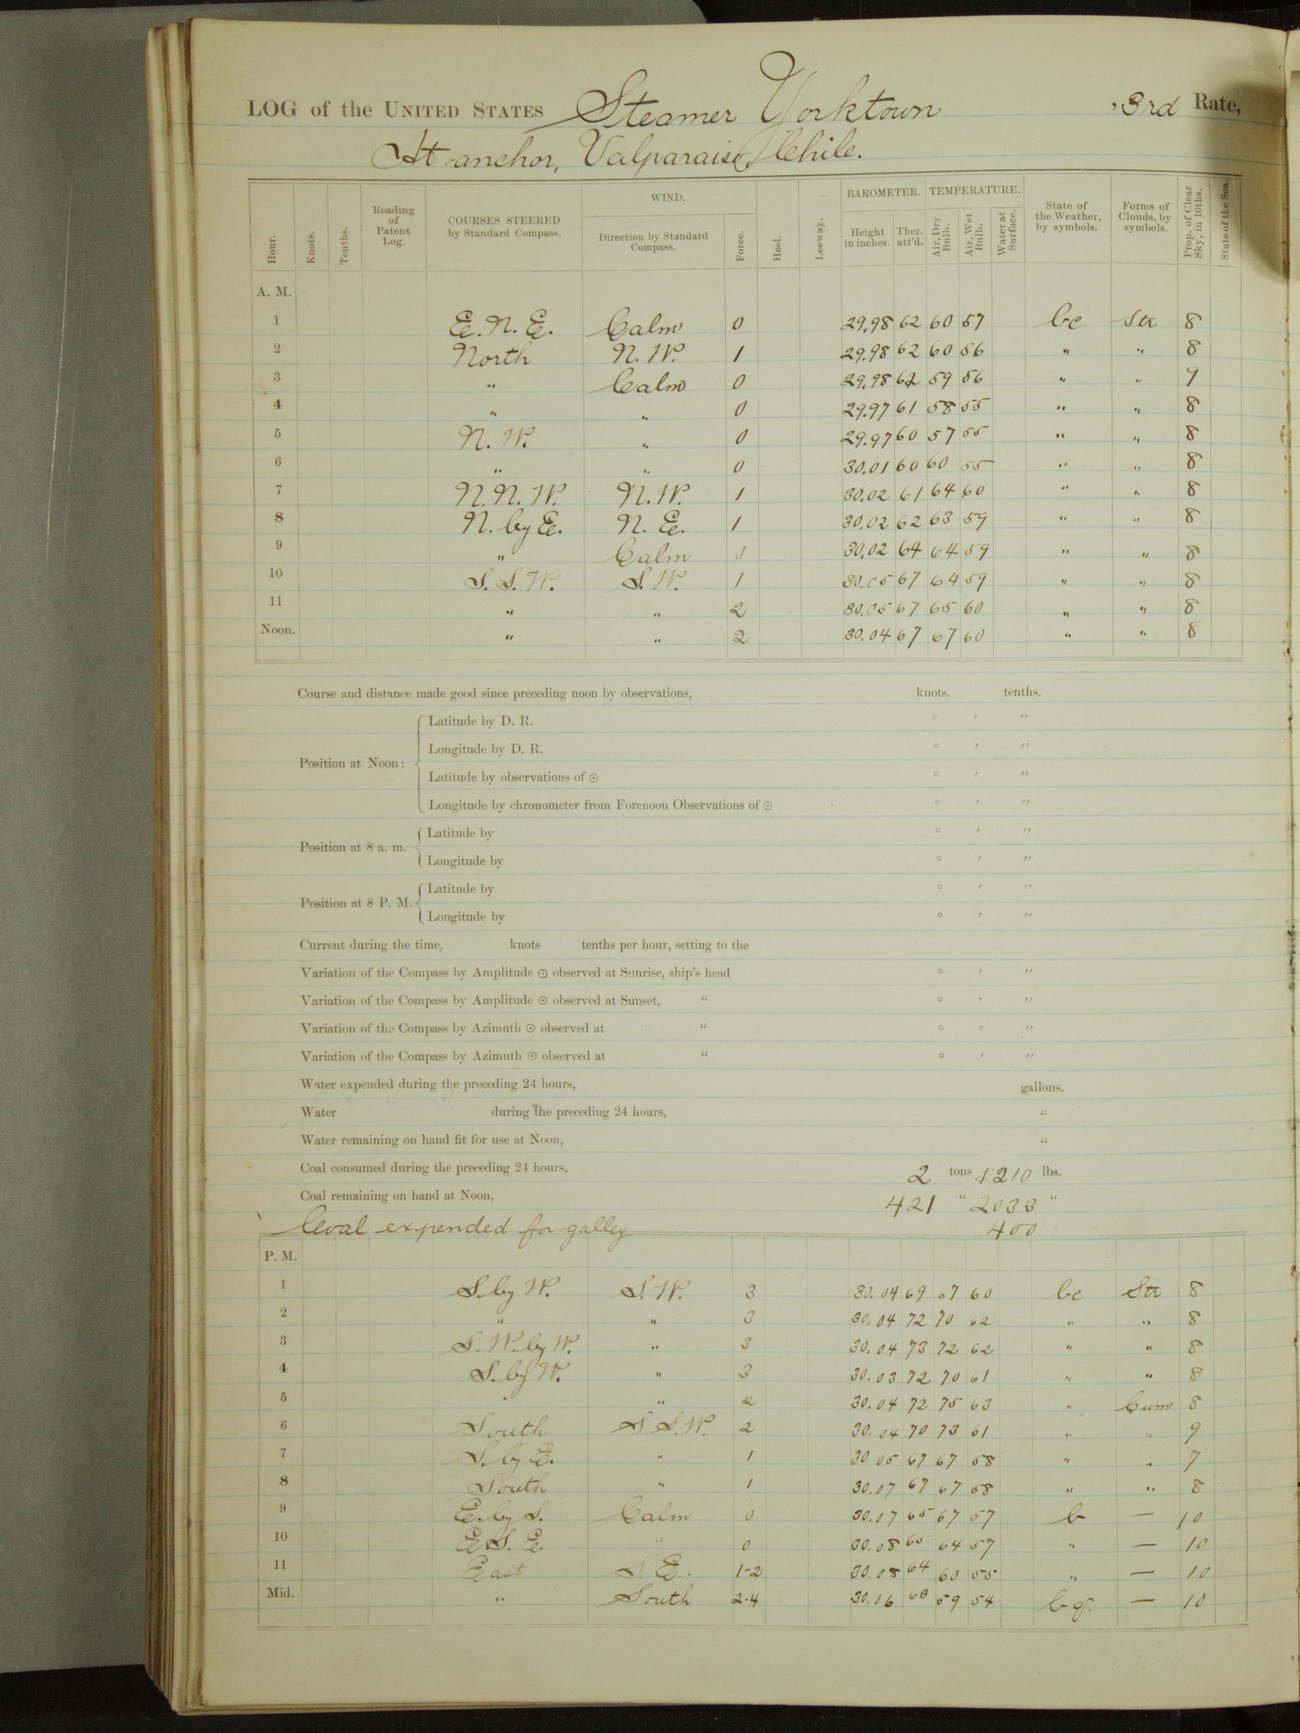 LOG of the UNITED STATES Steamer Yorktown , 3rd Rate,
At anchor, Valparaiso, Chile.
Hour. Knots. Tenths. Reading of Patent Log. COURSES STEERED by Standard Compass. WIND. Direction by Standard Compass. Force. Heel. Leeway. BAROMETER. Height in inches. Ther. att'd. TEMPERATURE. Air, Dry Bulb. Air, Wet Bulb. Water at Surface. State of the Weather, by symbols. Forms of Clouds, by symbols. Prop. of Clear Sky, in 10ths. State of the Sea.
A. M.
1 E. N. E. Calm 0 29.98 62 60 57 bc Str 8
2 North N. W. 1 29.98 62 60 56 " " 8
3 " Calm 0 29.98 62 59 56 " " 9
4 " " 0 29.97 61 58 55 " " 8
5 N. W. " 0 29.97 60 57 55 " " 8
6 " " 0 30.01 60 60 55 " " 8
7 N. N. W. N. W. 1 30.02 61 64 60 " " 8
8 N. by E. N. E. 1 30.02 62 63 59 " " 8
9 " Calm 0 30.02 64 64 59 " " 8
10 S. S. W. S. W. 1 30.05 67 64 59 " " 8
11 " " 2 30.05 67 65 60 " " 8
Noon. " " 2 30.04 67 67 60 " " 8
Course and distance made good since preceding noon by observations, knots. tenths.
Position at Noon:
Latitude by D. R. ° ′ ″
Longitude by D. R. ° ′ ″
Latitude by observations of ☉ ° ′ ″
Longitude by chronometer from Forenoon Observations of ☉ ° ′ ″
Position at 8 a. m.
Latitude by ° ′ ″
Longitude by ° ′ ″
Position at 8 P. M.
Latitude by ° ′ ″
Longitude by ° ′ ″
Current during the time, knots tenths per hour, setting to the
Variation of the Compass by Amplitude ☉ observed at Sunrise, ship's head ° ′ ″
Variation of the Compass by Amplitude ☉ observed at Sunset, " ° ′ ″
Variation of the Compass by Azimuth ☉ observed at " ° ′ ″
Variation of the Compass by Azimuth ☉ observed at " ° ′ ″
Water expended during the preceding 24 hours, gallons.
Water during the preceding 24 hours, "
Water remaining on hand fit for use at Noon, "
Coal consumed during the preceding 24 hours, 2 tons 1210 lbs.
Coal remaining on hand at Noon, 421 " 2033 "
Coal expended for galley 400
P. M.
1 S. by W. S. W. 3 30.04 69 67 60 bc Str 8
2 " " 3 30.04 72 70 62 " " 8
3 S. W. by W. " 3 30.04 73 72 62 " " 8
4 S. by W. " 3 30.03 72 70 61 " " 8
5 " " 2 30.04 72 75 63 " Cum 8
6 South S. S. W. 2 30.04 70 73 61 " " 9
7 S. by E. " 1 30.05 67 67 58 " " 7
8 South " 1 30.07 67 67 58 " " 8
9 E. by S. Calm 0 30.07 65 67 57 b — 10
10 E. S. E. " 0 30.08 65 64 57 " — 10
11 East S. E. 1-2 30.08 64 60 55 " — 10
Mid. " South 2-4 30.06 63 59 54 b q. — 10